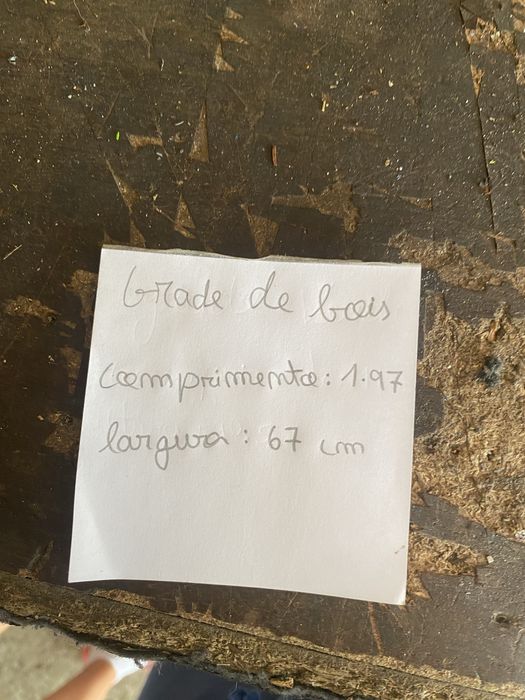 Grade de bois
comprimento: 1.97
largura: 67 cm